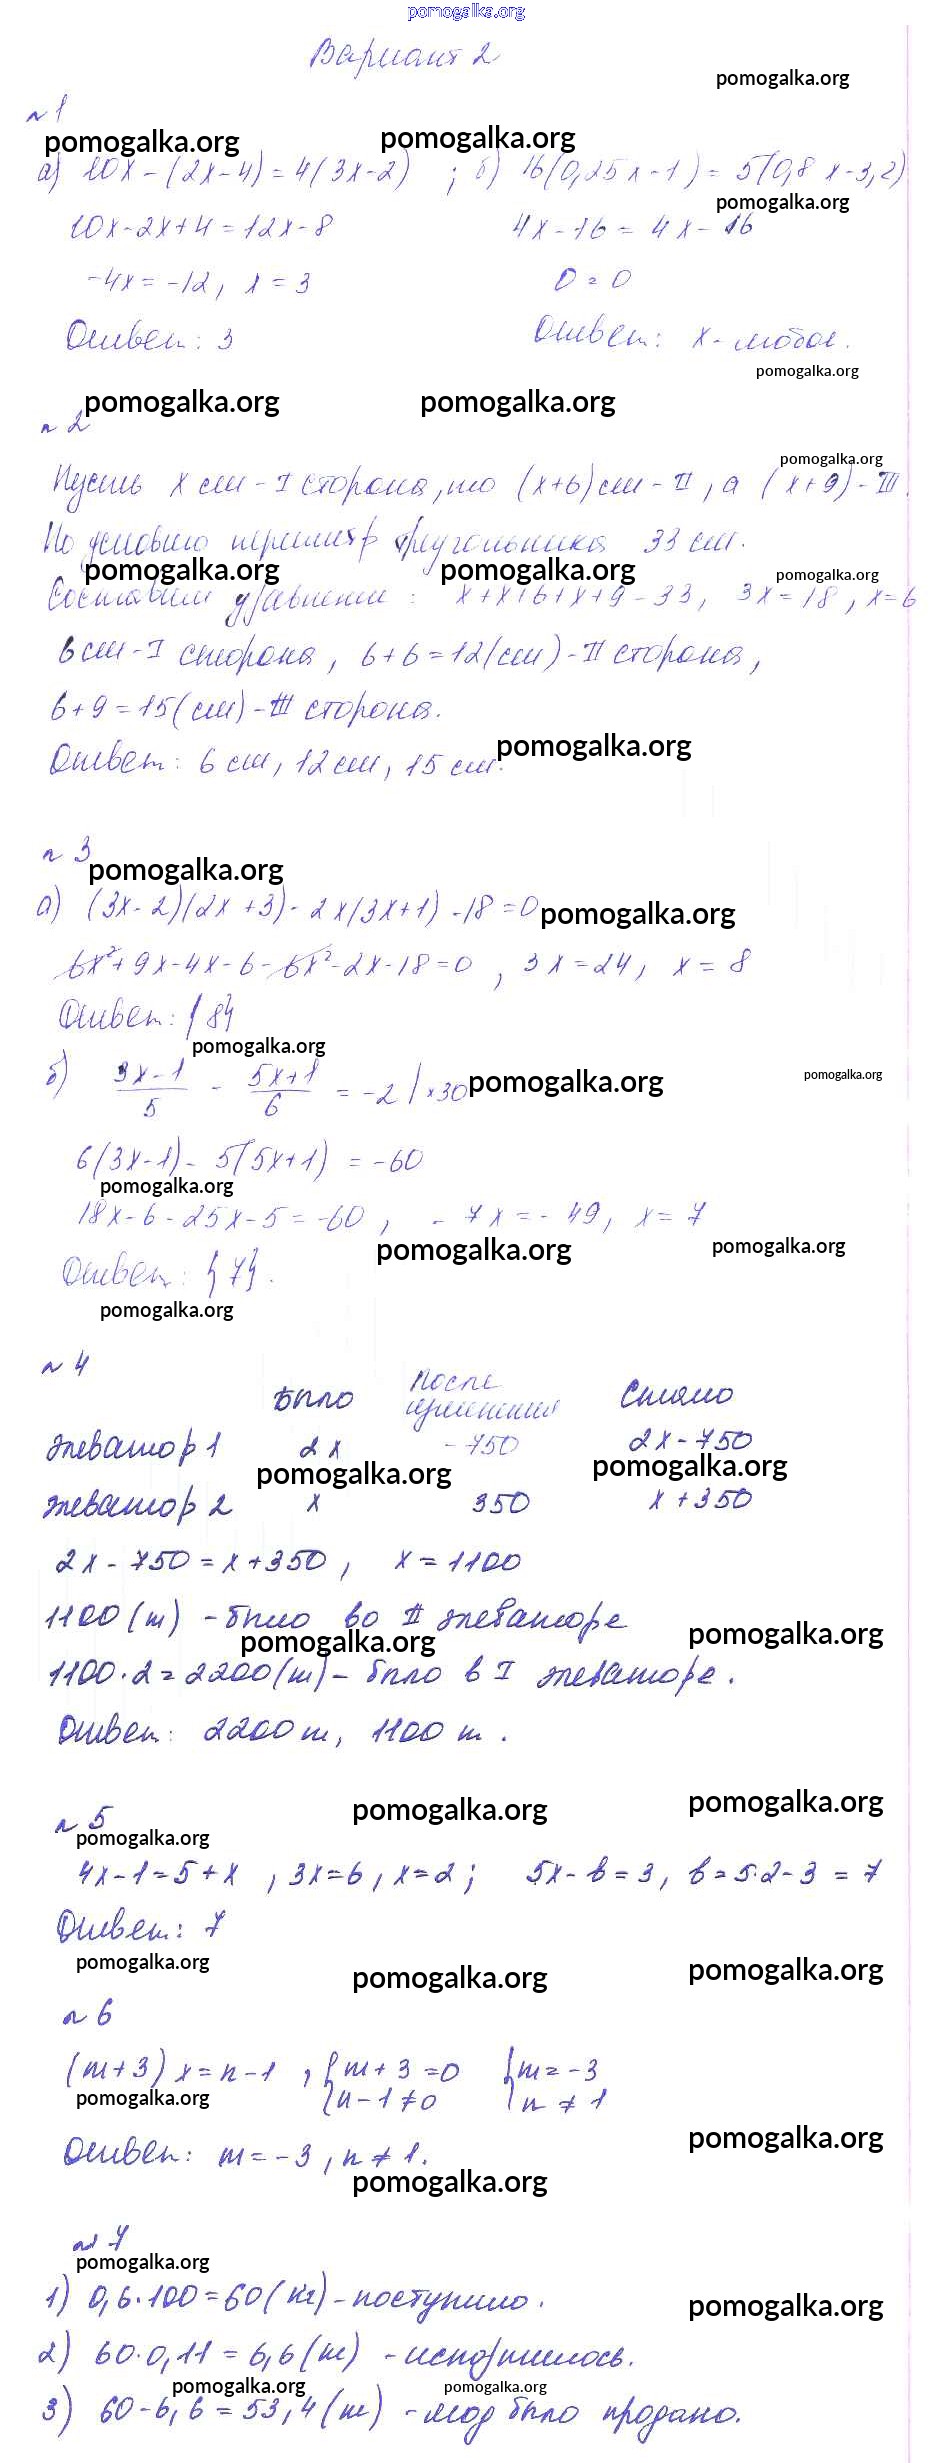 pomogalka.org
Вариант 2
pomogalka.org
№ 1
pomogalka.org pomogalka.org
а) 10x - (2x - 4) = 4(3x - 2) ; б) 16(0,25x - 1) = 5(0,8x - 3,2)
pomogalka.org
10x - 2x + 4 = 12x - 8 4x - 16 = 4x - 16
-4x = -12, x = 3 0 = 0
Ответ: 3 Ответ: x - любое.
pomogalka.org
pomogalka.org pomogalka.org
№ 2
pomogalka.org
Пусть x см - I сторона, то (x+6) см - II, а (x+9) - III.
По условию периметр треугольника 33 см.
pomogalka.org pomogalka.org pomogalka.org
Составим уравнение: x + x + 6 + x + 9 = 33, 3x = 18, x = 6
6 см - I сторона, 6 + 6 = 12 (см) - II сторона,
6 + 9 = 15 (см) - III сторона.
pomogalka.org
Ответ: 6 см, 12 см, 15 см.
№ 3
pomogalka.org
а) (3x - 2)(2x + 3) - 2x(3x + 1) - 18 = 0
pomogalka.org
6x² + 9x - 4x - 6 - 6x² - 2x - 18 = 0, 3x = 24, x = 8
Ответ: {8}
pomogalka.org
б) (3x - 1)/5 - (5x + 1)/6 = -2 | ×30
pomogalka.org pomogalka.org
6(3x - 1) - 5(5x + 1) = -60
pomogalka.org
18x - 6 - 25x - 5 = -60, -7x = -49, x = 7
pomogalka.org pomogalka.org
Ответ: {7}.
pomogalka.org
№ 4
Было После изменения Стало
элеватор 1 2x -750 2x - 750
pomogalka.org pomogalka.org
элеватор 2 x 350 x + 350
2x - 750 = x + 350, x = 1100
1100 (т) - было во II элеваторе
pomogalka.org pomogalka.org
1100·2 = 2200 (т) - было в I элеваторе.
Ответ: 2200 т, 1100 т.
pomogalka.org pomogalka.org
№ 5
pomogalka.org
4x - 1 = 5 + x, 3x = 6, x = 2; 5x - b = 3, b = 5·2 - 3 = 7
Ответ: 7
pomogalka.org pomogalka.org pomogalka.org
№ 6
(m + 3) x = n - 1, { m + 3 = 0 { m = -3
n - 1 ≠ 0 n ≠ 1
pomogalka.org
pomogalka.org
Ответ: m = -3, n ≠ 1.
pomogalka.org
№ 7
pomogalka.org
1) 0,6·100 = 60 (кг) - поступило.
pomogalka.org
2) 60·0,11 = 6,6 (т) - испортилось.
pomogalka.org pomogalka.org
3) 60 - 6,6 = 53,4 (т) - яблок было продано.